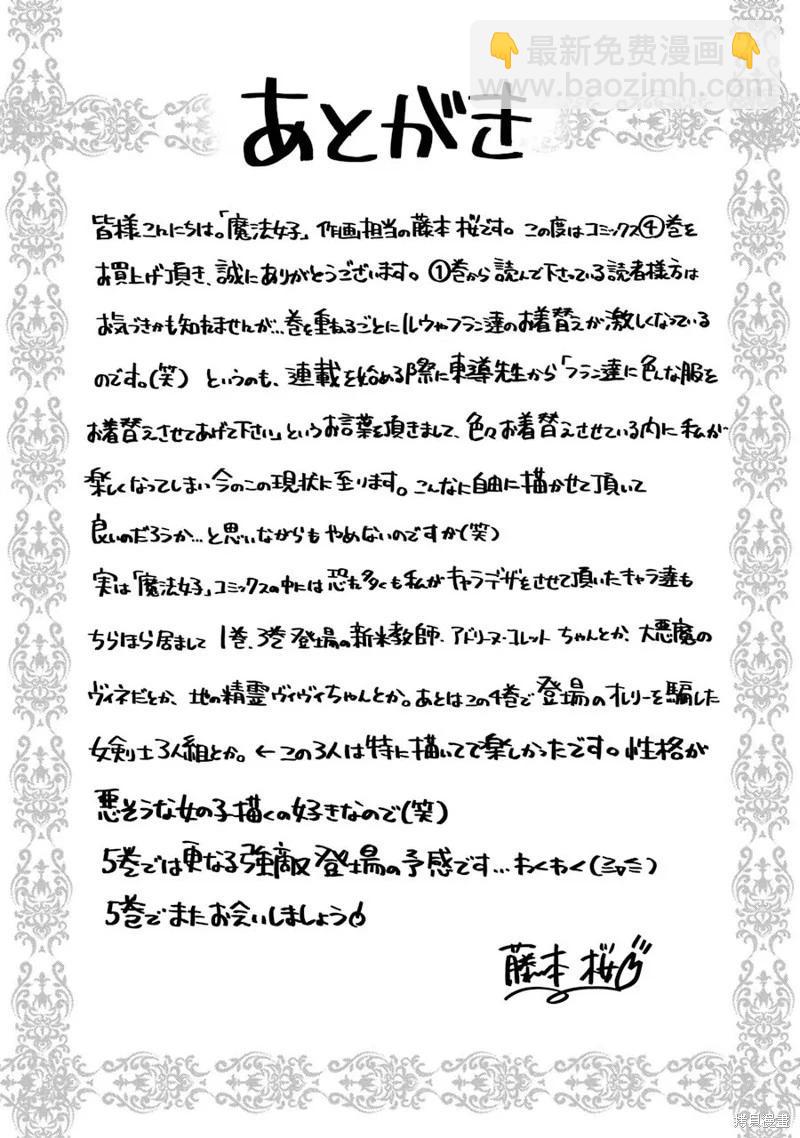 👇最新免费漫画👇
www.baozimh.com
あとがき
皆様こんにちは。「魔法女子」作画担当の藤本桜です。この度はコミックス④巻を
お買上げ頂き、誠にありがとうございます。①巻から読んで下さっている読者様方は
お気づきかも知れませんが…巻を重ねるごとにルウやフラン達のお着替えが激しくなっている
のです。(笑) というのも、連載を始める際に東導先生から「フラン達に色んな服を
お着替えさせてあげて下さい」というお言葉を頂きまして、色々お着替えさせている内に私が
楽しくなってしまい今のこの現状に至ります。こんなに自由に描かせて頂いて
良いのだろうか…と思いながらもやめないのですが(笑)
実は「魔法女子」コミックスの中には恐れ多くも私がキャラデザをさせて頂いたキャラ達も
ちらほら居まして 1巻、3巻登場の新米教師・アドリーヌ・コレットちゃんとか、大悪魔の
ヴィネだとか、地の精霊ヴィヴィちゃんとか。あとはこの4巻で登場のオレリーを騙した
女剣士3人組とか。←この3人は特に描いてて楽しかったです。性格が
悪そうな女の子描くの好きなので(笑)
5巻では更なる強敵登場の予感です…わくわく(≧▽≦)
5巻でまたお会いしましょう
藤本桜
拷貝漫畫